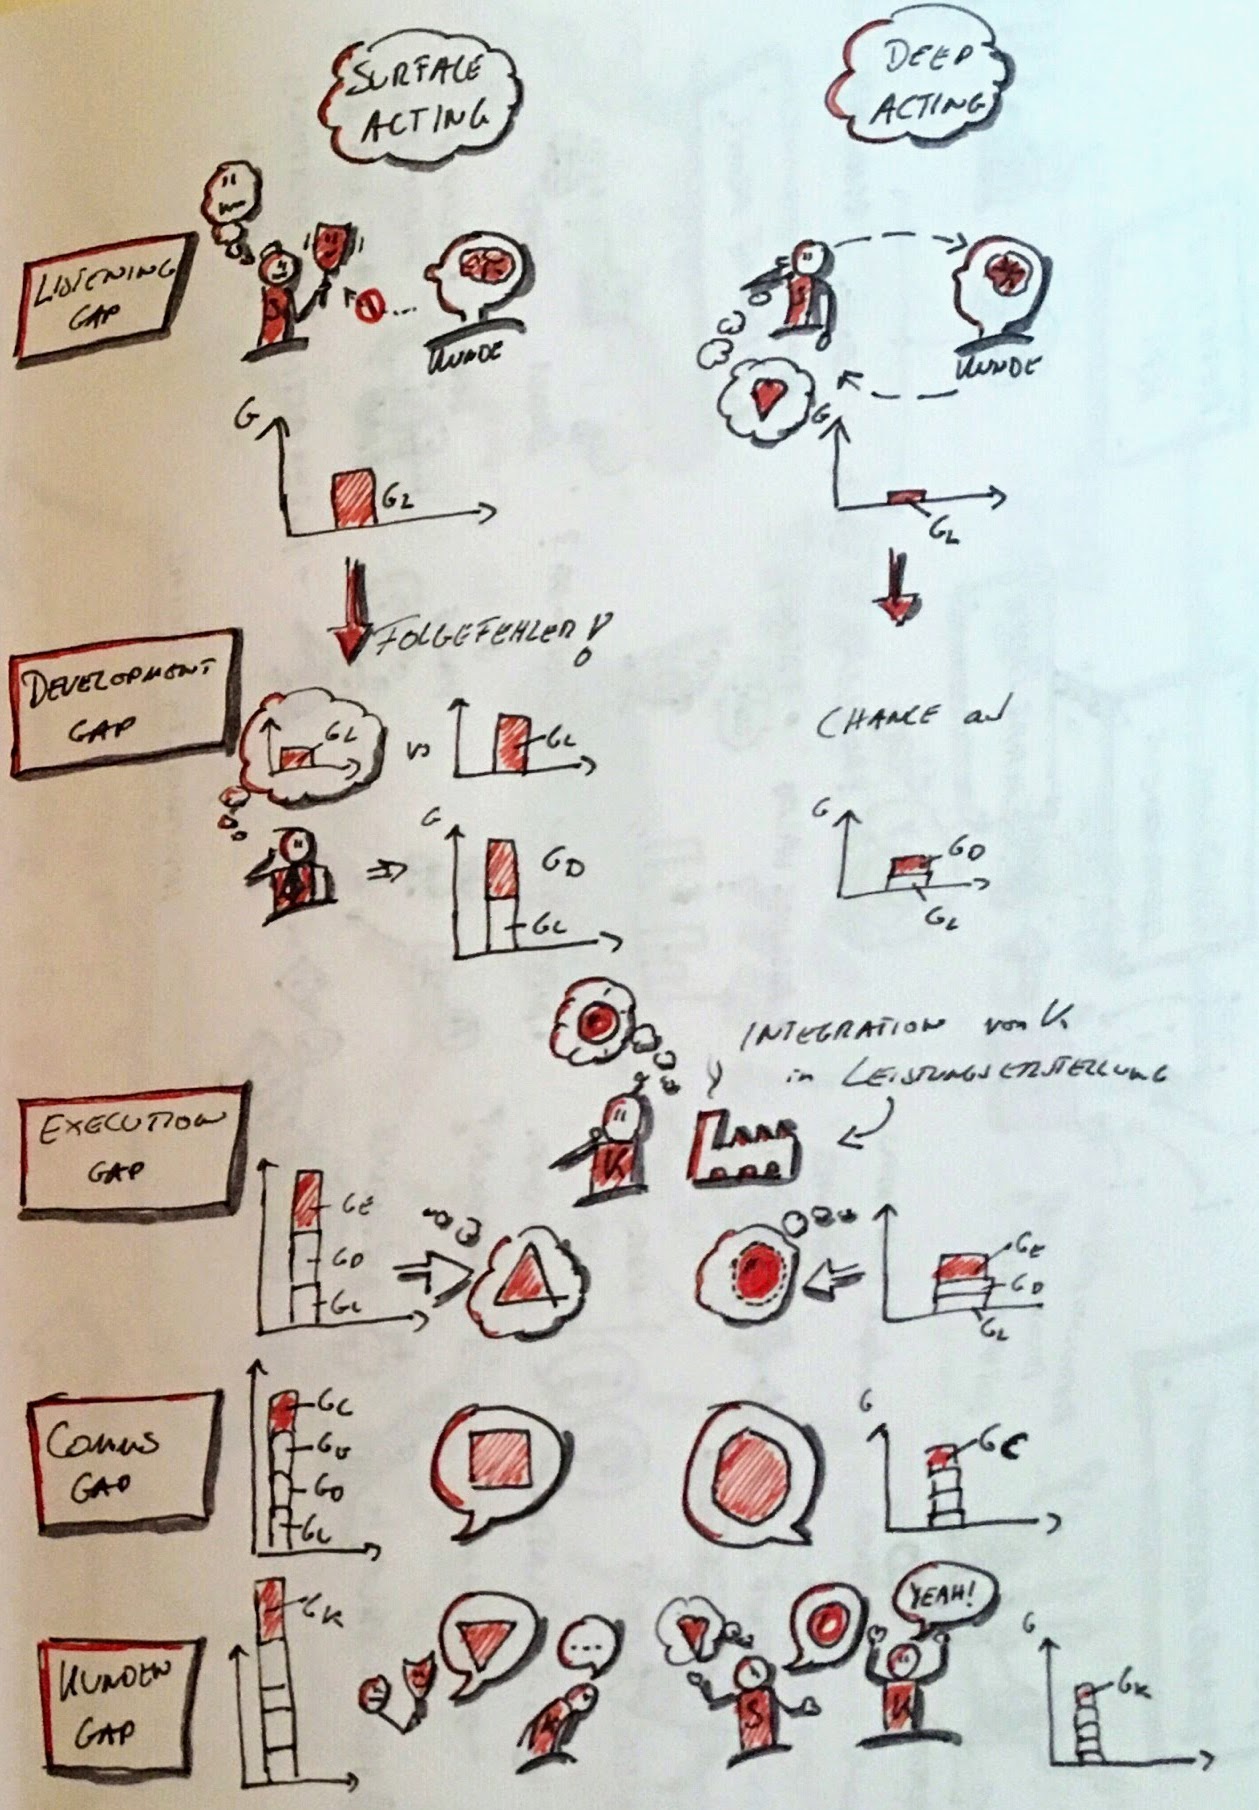 SURFACE
ACTING
DEEP
ACTING
LISTENING
GAP
S
KUNDE
S
KUNDE
G
GL
G
GL
FOLGEFEHLER!
DEVELOPMENT
GAP
GL
vs
GL
CHANCE auf
G
GD
GL
G
GD
GL
INTEGRATION von K
in LEISTUNGSERSTELLUNG
EXECUTION
GAP
K
GE
GD
GL
GE
GD
GL
COMMS
GAP
GC
GD
GL
G
GC
KUNDEN
GAP
GK
...
K
S
YEAH!
K
G
GK